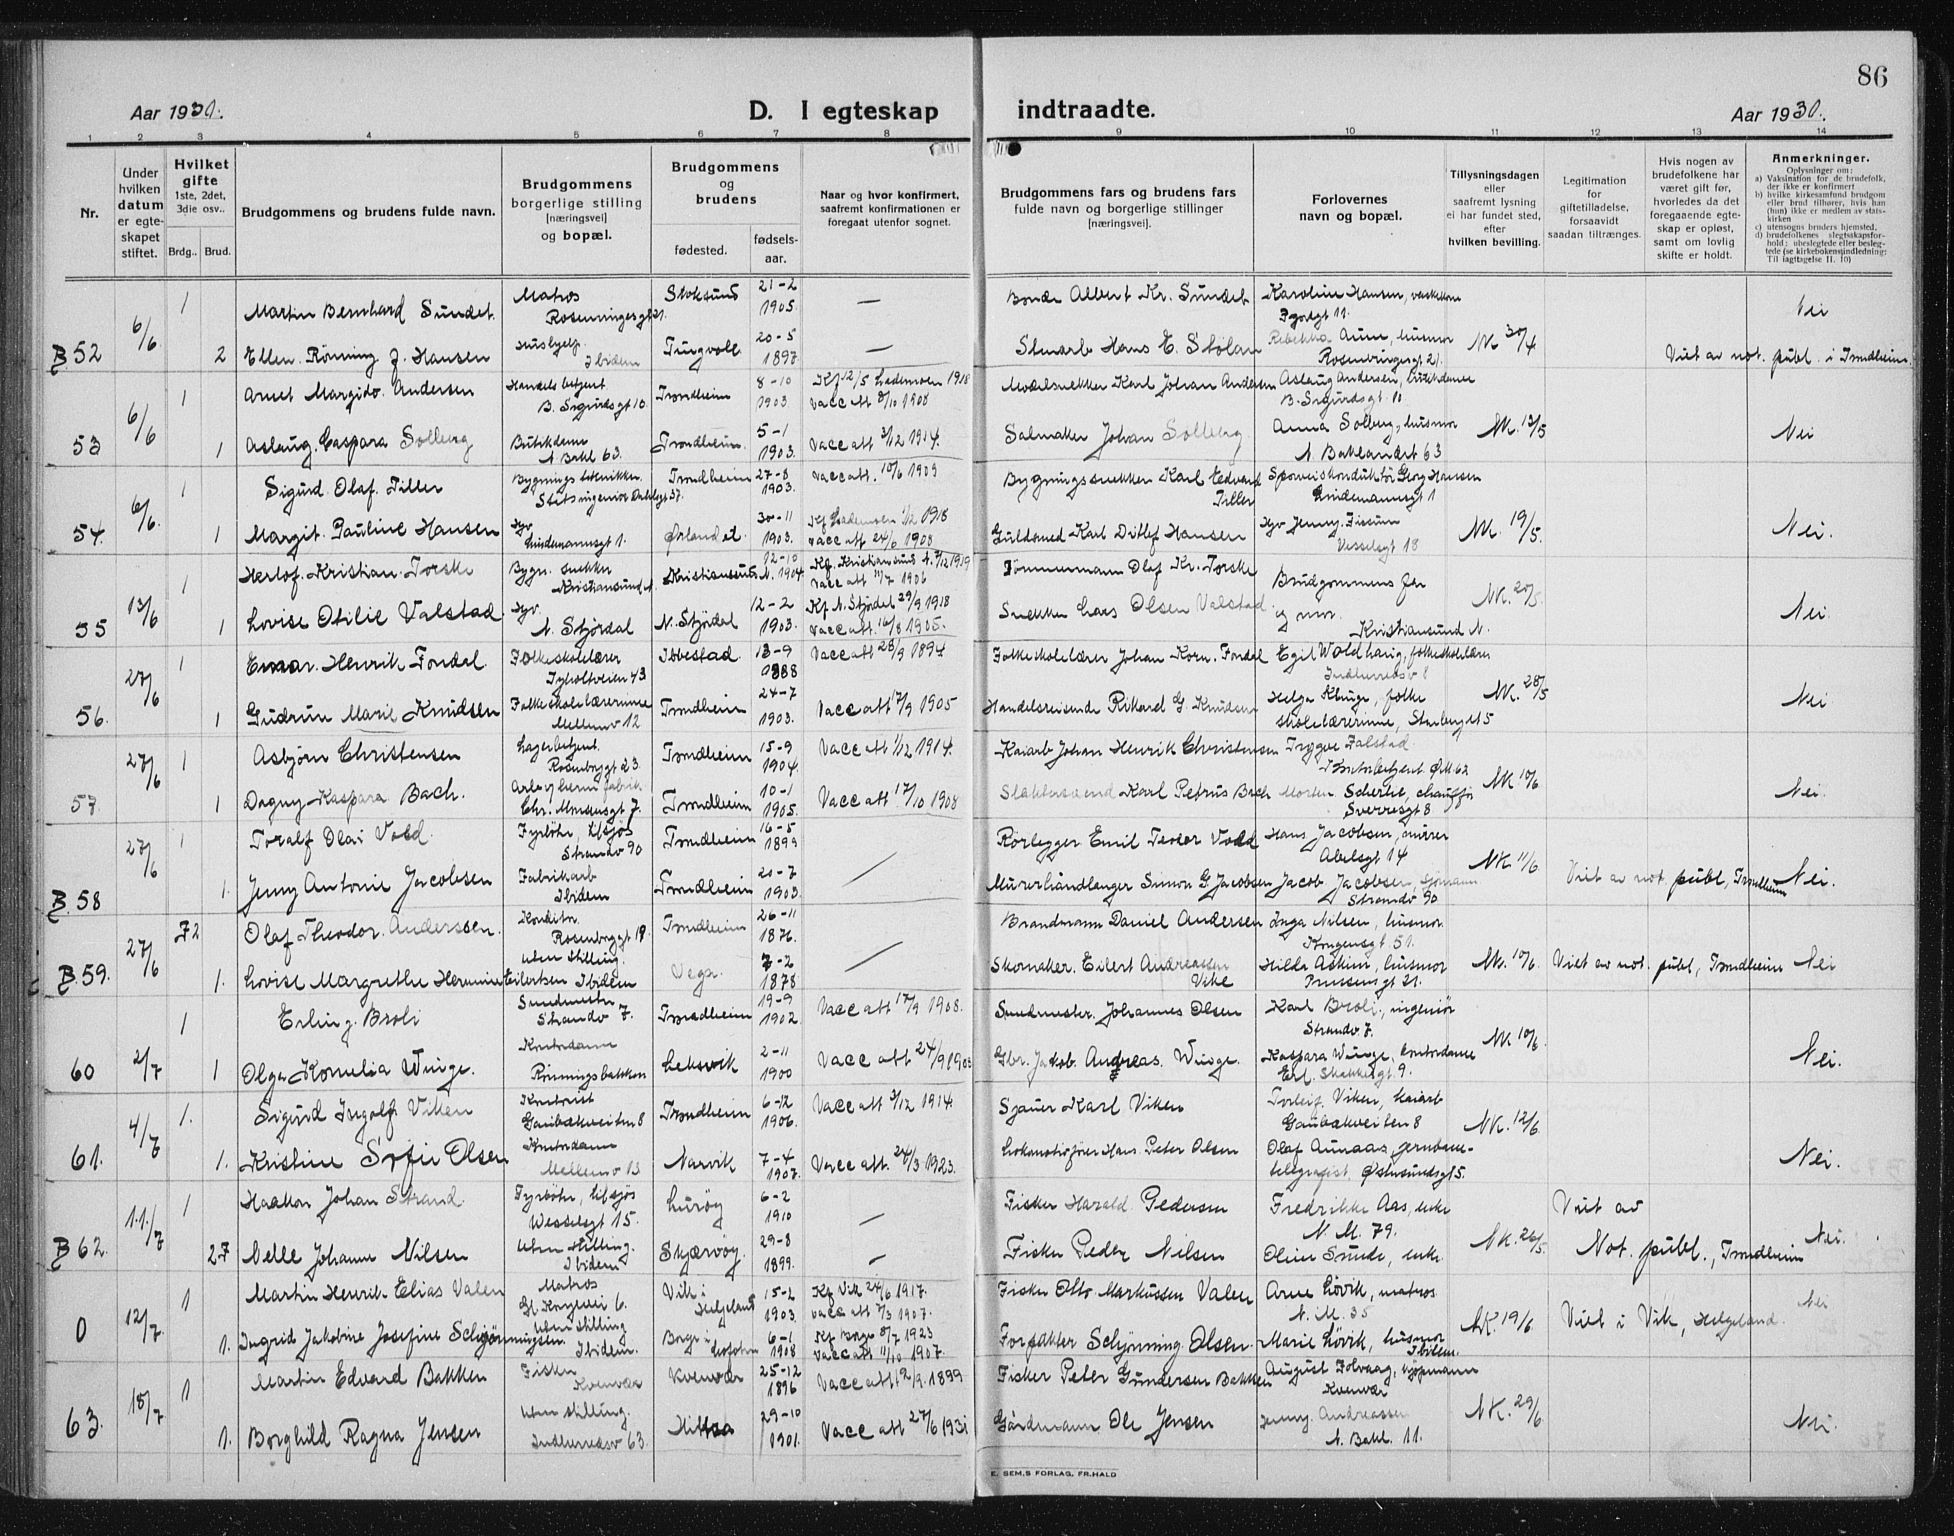 86
Aar 1930.
D. I egteskap indtraadte.
Aar 1930.
1 2 3 4 5 6 7 8 9 10 11 12 13 14
Nr.
Under hvilken datum er egteskapet stiftet.
Hvilket gifte 1ste, 2det, 3die osv..
Brdg.. Brud.
Brudgommens og brudens fulde navn.
Brudgommens borgerlige stilling [næringsvei] og bopæl.
Brudgommens og brudens
fødested.
fødsels-aar.
Naar og hvor konfirmert, saafremt konfirmationen er foregaat utenfor sognet.
Brudgommens fars og brudens fars fulde navn og borgerlige stillinger [næringsvei].
Forlovernes navn og bopæl.
Tillysningsdagen eller saafremt lysning ei har fundet sted, efter hvilken bevilling.
Legitimation for giftetilladelse, forsaavidt saadan tiltrænges.
Hvis nogen av brudefolkene har været gift før, hvorledes da det foregaaende egteskap er opløst, samt om lovlig skifte er holdt.
Anmerkninger.
Oplysninger om:
a) Vaksination for de brudefolk, der ikke er konfirmert
b) hvilke kirkesamfund brudgom eller brud tilhører, hvis han (hun) ikke er medlem av statskirken
c) utensogns bruders hjemsted.
d) brudefolkenes slegtsskapsforhold: ubeslegtede eller beslegtede (se kirkebokensindledning: Til iagttagelse II. 10)
B 52 6/6 1 Martin Bernhard Sundet. Matros Stoksund 21-2 1905. — Bonde Albert Kr. Sundet Karoline Hansen, Nei
2 Ellen Rønning f. Hansen Ibidem Tingvoll 20-5 1897. — Hans E. Stølan Aune, husmor NK 30/4 Viet av not. publ. i Trondheim.
53 6/6 1 Arnet Margido Andersen B. Sigurdsgt 10 Trondheim 8-10 1903. Kf 12/5 Lademoen 1918 Vacc att 1908 Karl Johan Andersen Aslaug Andersen, butikdame B. Sigurdsgt. 10
1 Aslaug Caspara Solberg Butikdame N. Bakl 63. Trondheim 5-1 1903. Vacc att 3/12 1914. Salmaker Johan Solberg Anna Solberg, husmor N. Baklandet 63 NK. 13/5 Nei
54. 6/6. 1 Sigurd Olaf Tiller Trondheim 27-8 1903. Vacc att. 1909 Bygningssnekker Karl Edvard Tiller Georg Hansen Lindemannsgt 1
1 Margit Pauline Hansen Lindemannsgt 1. Ørlandet 30-11 1903. Kf Lademoen 1918 Vacc att 24/6 1908 Guldsmed Karl Ditlef Hansen Jenny Fissum Wesselsgt 18 NK. 19/5. Nei.
55 13/6 1 Herlof Kristian Torske Bygn. snekker Kristiansund N. Kristiansund N. 12-10 1904. Kf. Kristiansund N. 1919 Vacc att 11/7 1906 Tømmermann Olaf Kr. Torske Brudgommens far og mor. Kristiansund N.
1 Lovise Otilie Valstad N. Stjørdal N. Stjørdal 12-2 1903. Kf N. Stjørdal 29/9 1918 Vacc att. 16/8 1905. Snekker Lars Olsen Valstad. NK. 20/5. Nei
56. 27/6 1 Einar Henrik Fondal Folkeskolelærer Tyholtveien 43 Ibbestad 13-9 1888 Vacc att 28/9 1894. Folkeskolelærer Johan Korn. Fondal Egil folkeskolelærer
1 Gudrun Marie Knudsen Folkeskolelærerinne Mellemv 12 Trondheim 24-7 1903. Vacc att 17/9 1905 Handelsreisende Rikard G. Knudsen Helga Kluge, folkeskolelærerinne, NK. 28/5 Nei
57. 27/6 1 Asbjørn Christensen Lagerbetjent. Rosenborggt 23. Trondheim 15-9 1904. Vacc att 1/12 1914. Kaiarb Johan Henrik Christensen Trygve Falstad
1 Dagny Kaspara Bach. Chr. Monsensgt 7. Trondheim 10-1 1905. Vacc att. 17/10 1908 Karl Petrus Bach Morten Schevie, chauffør Sverresgt 8 NK 10/6 Nei.
B. 58 27/6 1 Toralf Olai Vold Fyrbøter, tilsjøs Strandv 90 Trondheim 16-5 1899 Rørlegger Emil Teoder Vold Hans Jacobsen, murer Abelsgt 14
1. Jenny Antonie Jacobsen Fabrikarb Ibidem Trondheim 20-7 1903. Murerhåndlanger Simon G. Jacobsen Jacob Jacobsen, sjømann Strandv 90 NK. 11/6. Viet av not publ, Trondheim Nei.
B. 59. 27/6 2 Olaf Theodor Anderssen. Konditor. Rosenborggt 19. Trondheim 26-11 1876. Brandmann Daniel Andersen Inga Nilsen, husmor. Kongensgt 51.
1. Lovise Margrethe Hermine Eilertsen Uten stilling. Ibidem Vega. 7-2 1878 Skomaker. Eilert Andreassen Vike Hilda Askim, husmor Prinsensgt 21. NK. 10/6. Viet av not. publ, Trondheim Nei
60 2/7 1 Erling Broli Smedmester Strandv 7. Trondheim 19-9 1902. Vacc att 17/9 1908. Smedmester. Johannes Olsen Karl Broli, ingeniør Strandv 7.
1 Olga Kornelia Winge. Kontordame Rønningsbakken Leksvik 2-11 1900 Vacc att 24/9 1903 Gbr. Jakob Andreas Winge. Kaspara Winge, kontordame Erl. Skakkesgt 9. NK 10/6. Nei.
61. 4/7 1. Sigurd Ingolf Viken Kontorist Gaubækveiten 8 Trondheim 6-12 1906. Vacc att 3/12 1914. Sjauer Karl Viken Torleif Viken, kaiarb Gaubækveiten 8
1. Kristine Sofie Olsen Kontordame Mellemv 13 Narvik 7-4 1907. Vacc att. 24/3 1923. Lokomotivfører Hans Peter Olsen Olaf Aunaas, jernbanetelegrafist, Østersundsgt 5. NK. 12/6. Nei.
B 62. 11./7 1 Haakon Johan Strand. Fyrbøter, tilsjøs Wesselsgt 15. Lurøy 6-2 1910 — Fisker Harald Pedersen Fredrikke Aas, enke N. M. 79. Viet av
27 Nelle Johanne Nilsen Uten stilling. Ibidem Skjærvøy. 29-8 1899. — Fisker Peder Nilsen Oline Sunde, enke. NK. 26/5. Not. publ., Trondheim Nei.
0 12/7. 1 Martin Henrik Elias Valen Matros Gl. Kongevei 6. Vik i Helgeland 15-2 1903. Kf Vik 24/6 1917. Vacc att 7/3 1907. Fisker Otto Markussen Valen Arne Løvik, matros N. M. 35 Nei
1. Ingrid Jakobine Josefine Schjønningsen. Uten stilling Ibidem. Borge i Lofoten 6-1 1908 Kf Borge 8/7 1923 Vacc att 11/10 1907. Schjønning Olsen. Marie Løvik, husmor Ibidem. NK. 19/6. Viet i Vik, Helgeland.
63. 18/7 1 Martin Edvard Bakken Fisker Kvenvær Kvenvær 25-12 1896 Vacc att 12/9. 1899 Fisker Peter Gundersen Bakken August Folvaag, kjøpmann Kvenvær
1. Borghild Ragna Jensen Uten stilling. Indherredsv 63. Hitra 29-10 1901. Vacc att 27/6 1931 Gårdmann Ole Jensen Jenny Andreassen N. Bakl. 11. NK. 29/6. Nei.
E. SEM,S FORLAG, FR.HALD